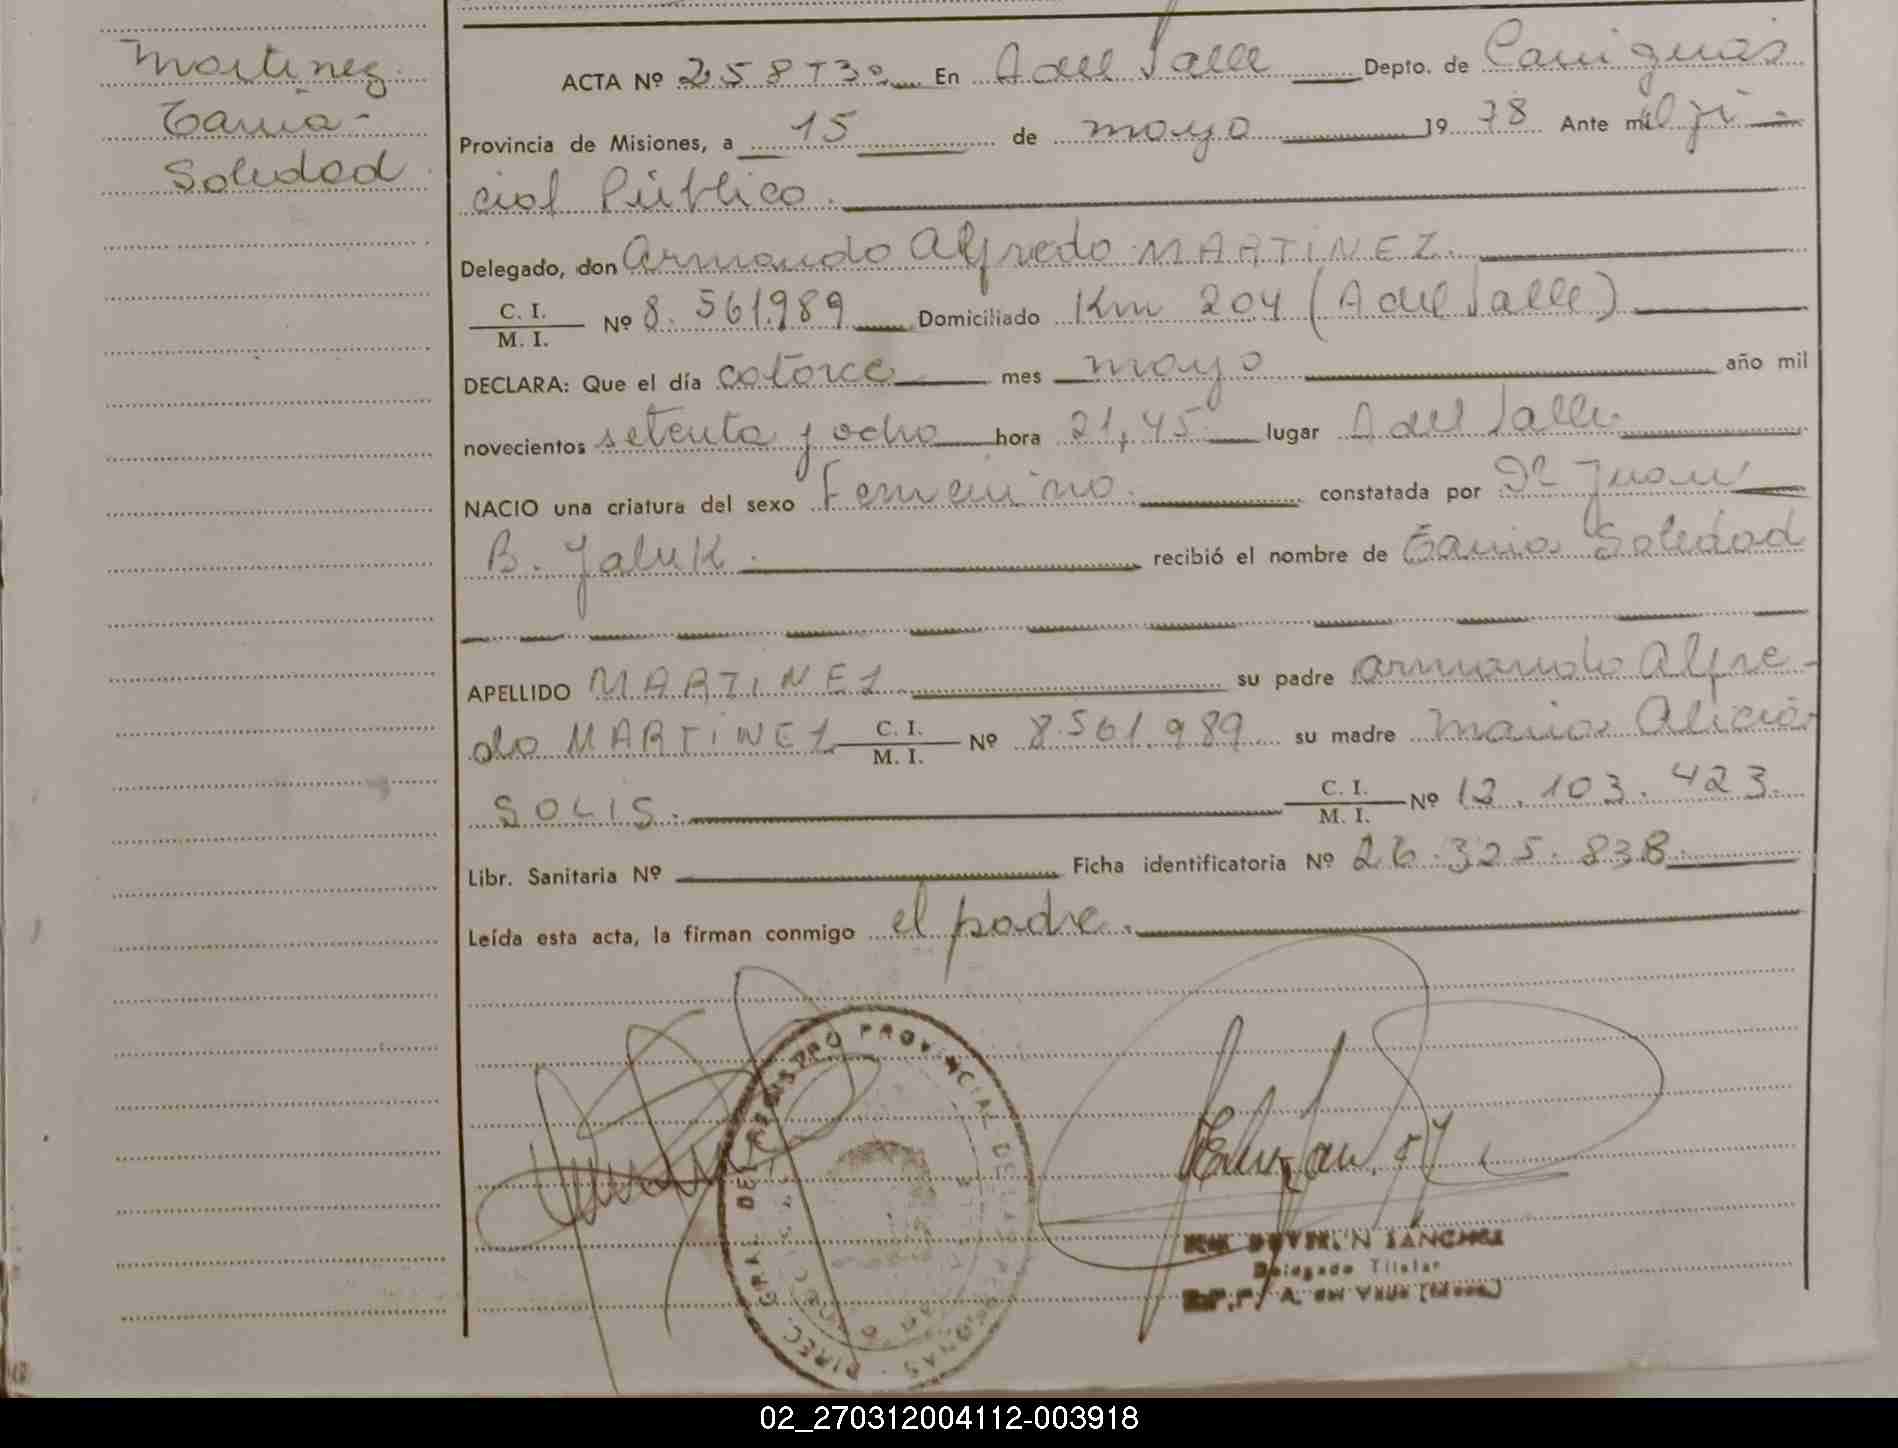 Martinez
Tania
Soledad
ACTA Nº 258 Tº 3º En A del Valle Depto. de Cainguás
Provincia de Misiones, a 15 de mayo 1978 Ante mi Ofi-
cial Público.
Delegado, don Armando Alfredo MARTINEZ.
C. I.
M. I. Nº 8.561.989 Domiciliado Km 204 (A del Valle)
DECLARA: Que el día catorce mes mayo año mil
novecientos setenta y ocho hora 21,45 lugar A del Valle
NACIO una criatura del sexo Femenino. constatada por Dr Juan
B. Jaluk. recibió el nombre de Tania Soledad
APELLIDO MARTINEZ su padre Armando Alfre-
do MARTINEZ C. I.
M. I. Nº 8.561.989 su madre Maria Alicia
SOLIS. C. I.
M. I. Nº 12.103.423.
Libr. Sanitaria Nº Ficha identificatoria Nº 26.325.838
Leída esta acta, la firman conmigo el padre.
DIREC. GRAL. DEL REGISTRO PROVINCIAL DE LAS PERSONAS
SANCHEZ
Delegado Titular
02_270312004112-003918